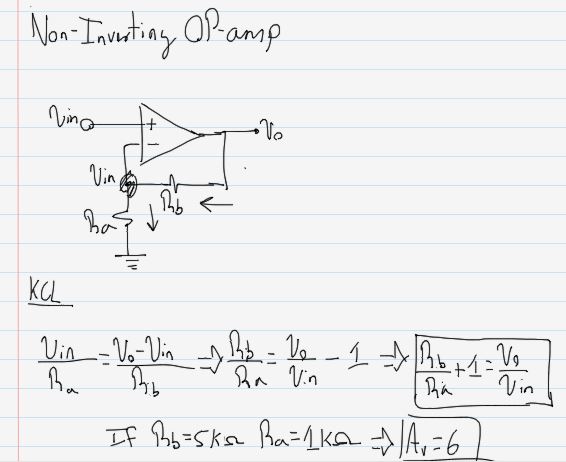 Non-Inverting OP-amp
Vin
+
Vo
-
Vin
Rb
Ra
KCL
Vin/Ra = Vo-Vin/Rb ⇒ Rb/Ra = Vo/Vin - 1 ⇒ Rb/Ra + 1 = Vo/Vin
If Rb=5KΩ Ra=1KΩ ⇒ Av=6